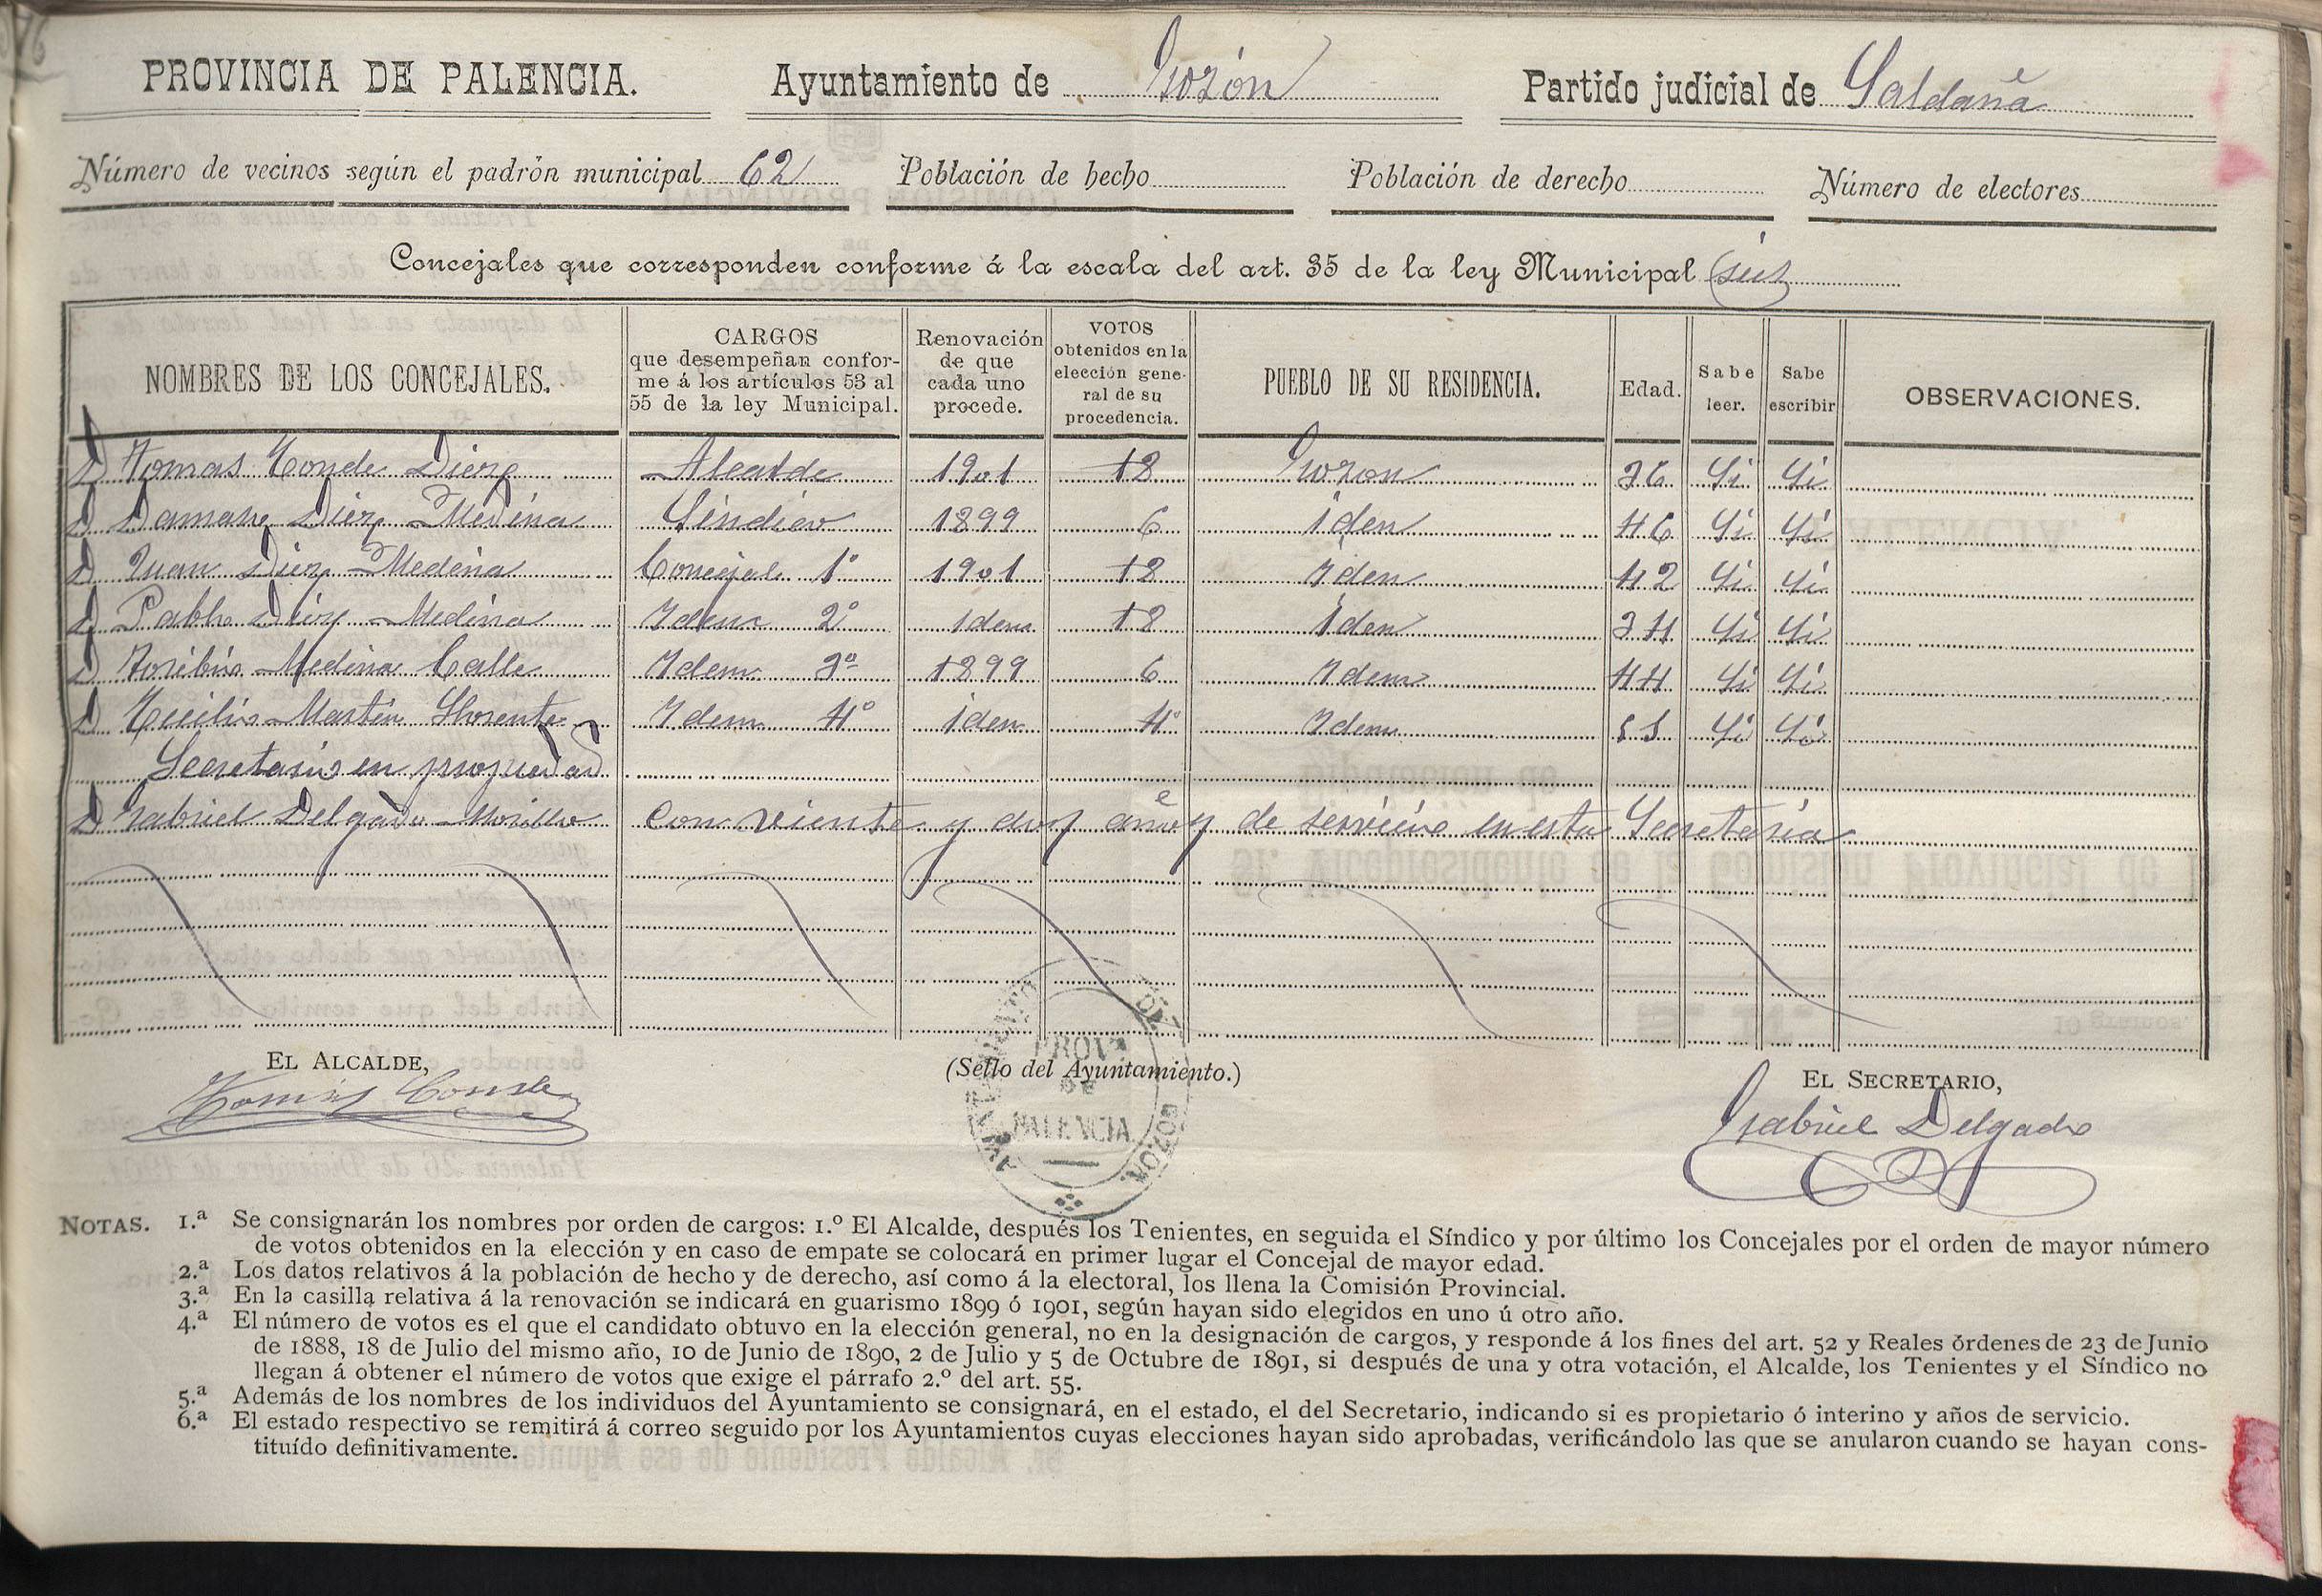 PROVINCIA DE PALENCIA. Ayuntamiento de Gozón Partido judicial de Saldaña
Número de vecinos según el padrón municipal 62 Población de hecho Población de derecho Número de electores
Concejales que corresponden conforme á la escala del art. 35 de la ley Municipal seis
NOMBRES DE LOS CONCEJALES. CARGOS que desempeñan conforme á los artículos 53 al 55 de la ley Municipal. Renovación de que cada uno procede. VOTOS obtenidos en la elección general de su procedencia. PUEBLO DE SU RESIDENCIA. Edad. Sabe leer. Sabe escribir OBSERVACIONES.
D Tomas Conde Diez Alcalde 1901 18 Gozon 36 Si Si
D Damaso Diez Medina Sindico 1899 6 iden 46 Si Si
D Juan Diez Medina Concejal 1º 1901 18 Iden 42 Si Si
D Pablo Diez Medina Idem 2º idem 18 Iden 34 Si Si
D Toribio Medina Calle Idem 3º 1899 6 Idem 44 Si Si
D Cecilio Martin Llorente Idem 4º iden 4º Idem Si Si
Secretario en propiedad
D Gabriel Delgado Morillo Con viente y dos años de servicio en esta Secretaria
EL ALCALDE, (Sello del Ayuntamiento.) EL SECRETARIO,
Tomás Conde
Gabriel Delgado
AYUNTAMIENTO DE GOZON.
PROVª
DE
PALENCIA
NOTAS. 1.ª Se consignarán los nombres por orden de cargos: 1.º El Alcalde, después los Tenientes, en seguida el Síndico y por último los Concejales por el orden de mayor número
de votos obtenidos en la elección y en caso de empate se colocará en primer lugar el Concejal de mayor edad.
2.ª Los datos relativos á la población de hecho y de derecho, así como á la electoral, los llena la Comisión Provincial.
3.ª En la casilla relativa á la renovación se indicará en guarismo 1899 ó 1901, según hayan sido elegidos en uno ú otro año.
4.ª El número de votos es el que el candidato obtuvo en la elección general, no en la designación de cargos, y responde á los fines del art. 52 y Reales órdenes de 23 de Junio
de 1888, 18 de Julio del mismo año, 10 de Junio de 1890, 2 de Julio y 5 de Octubre de 1891, si después de una y otra votación, el Alcalde, los Tenientes y el Síndico no
llegan á obtener el número de votos que exige el párrafo 2.º del art. 55.
5.ª Además de los nombres de los individuos del Ayuntamiento se consignará, en el estado, el del Secretario, indicando si es propietario ó interino y años de servicio.
6.ª El estado respectivo se remitirá á correo seguido por los Ayuntamientos cuyas elecciones hayan sido aprobadas, verificándolo las que se anularon cuando se hayan cons-
tituído definitivamente.